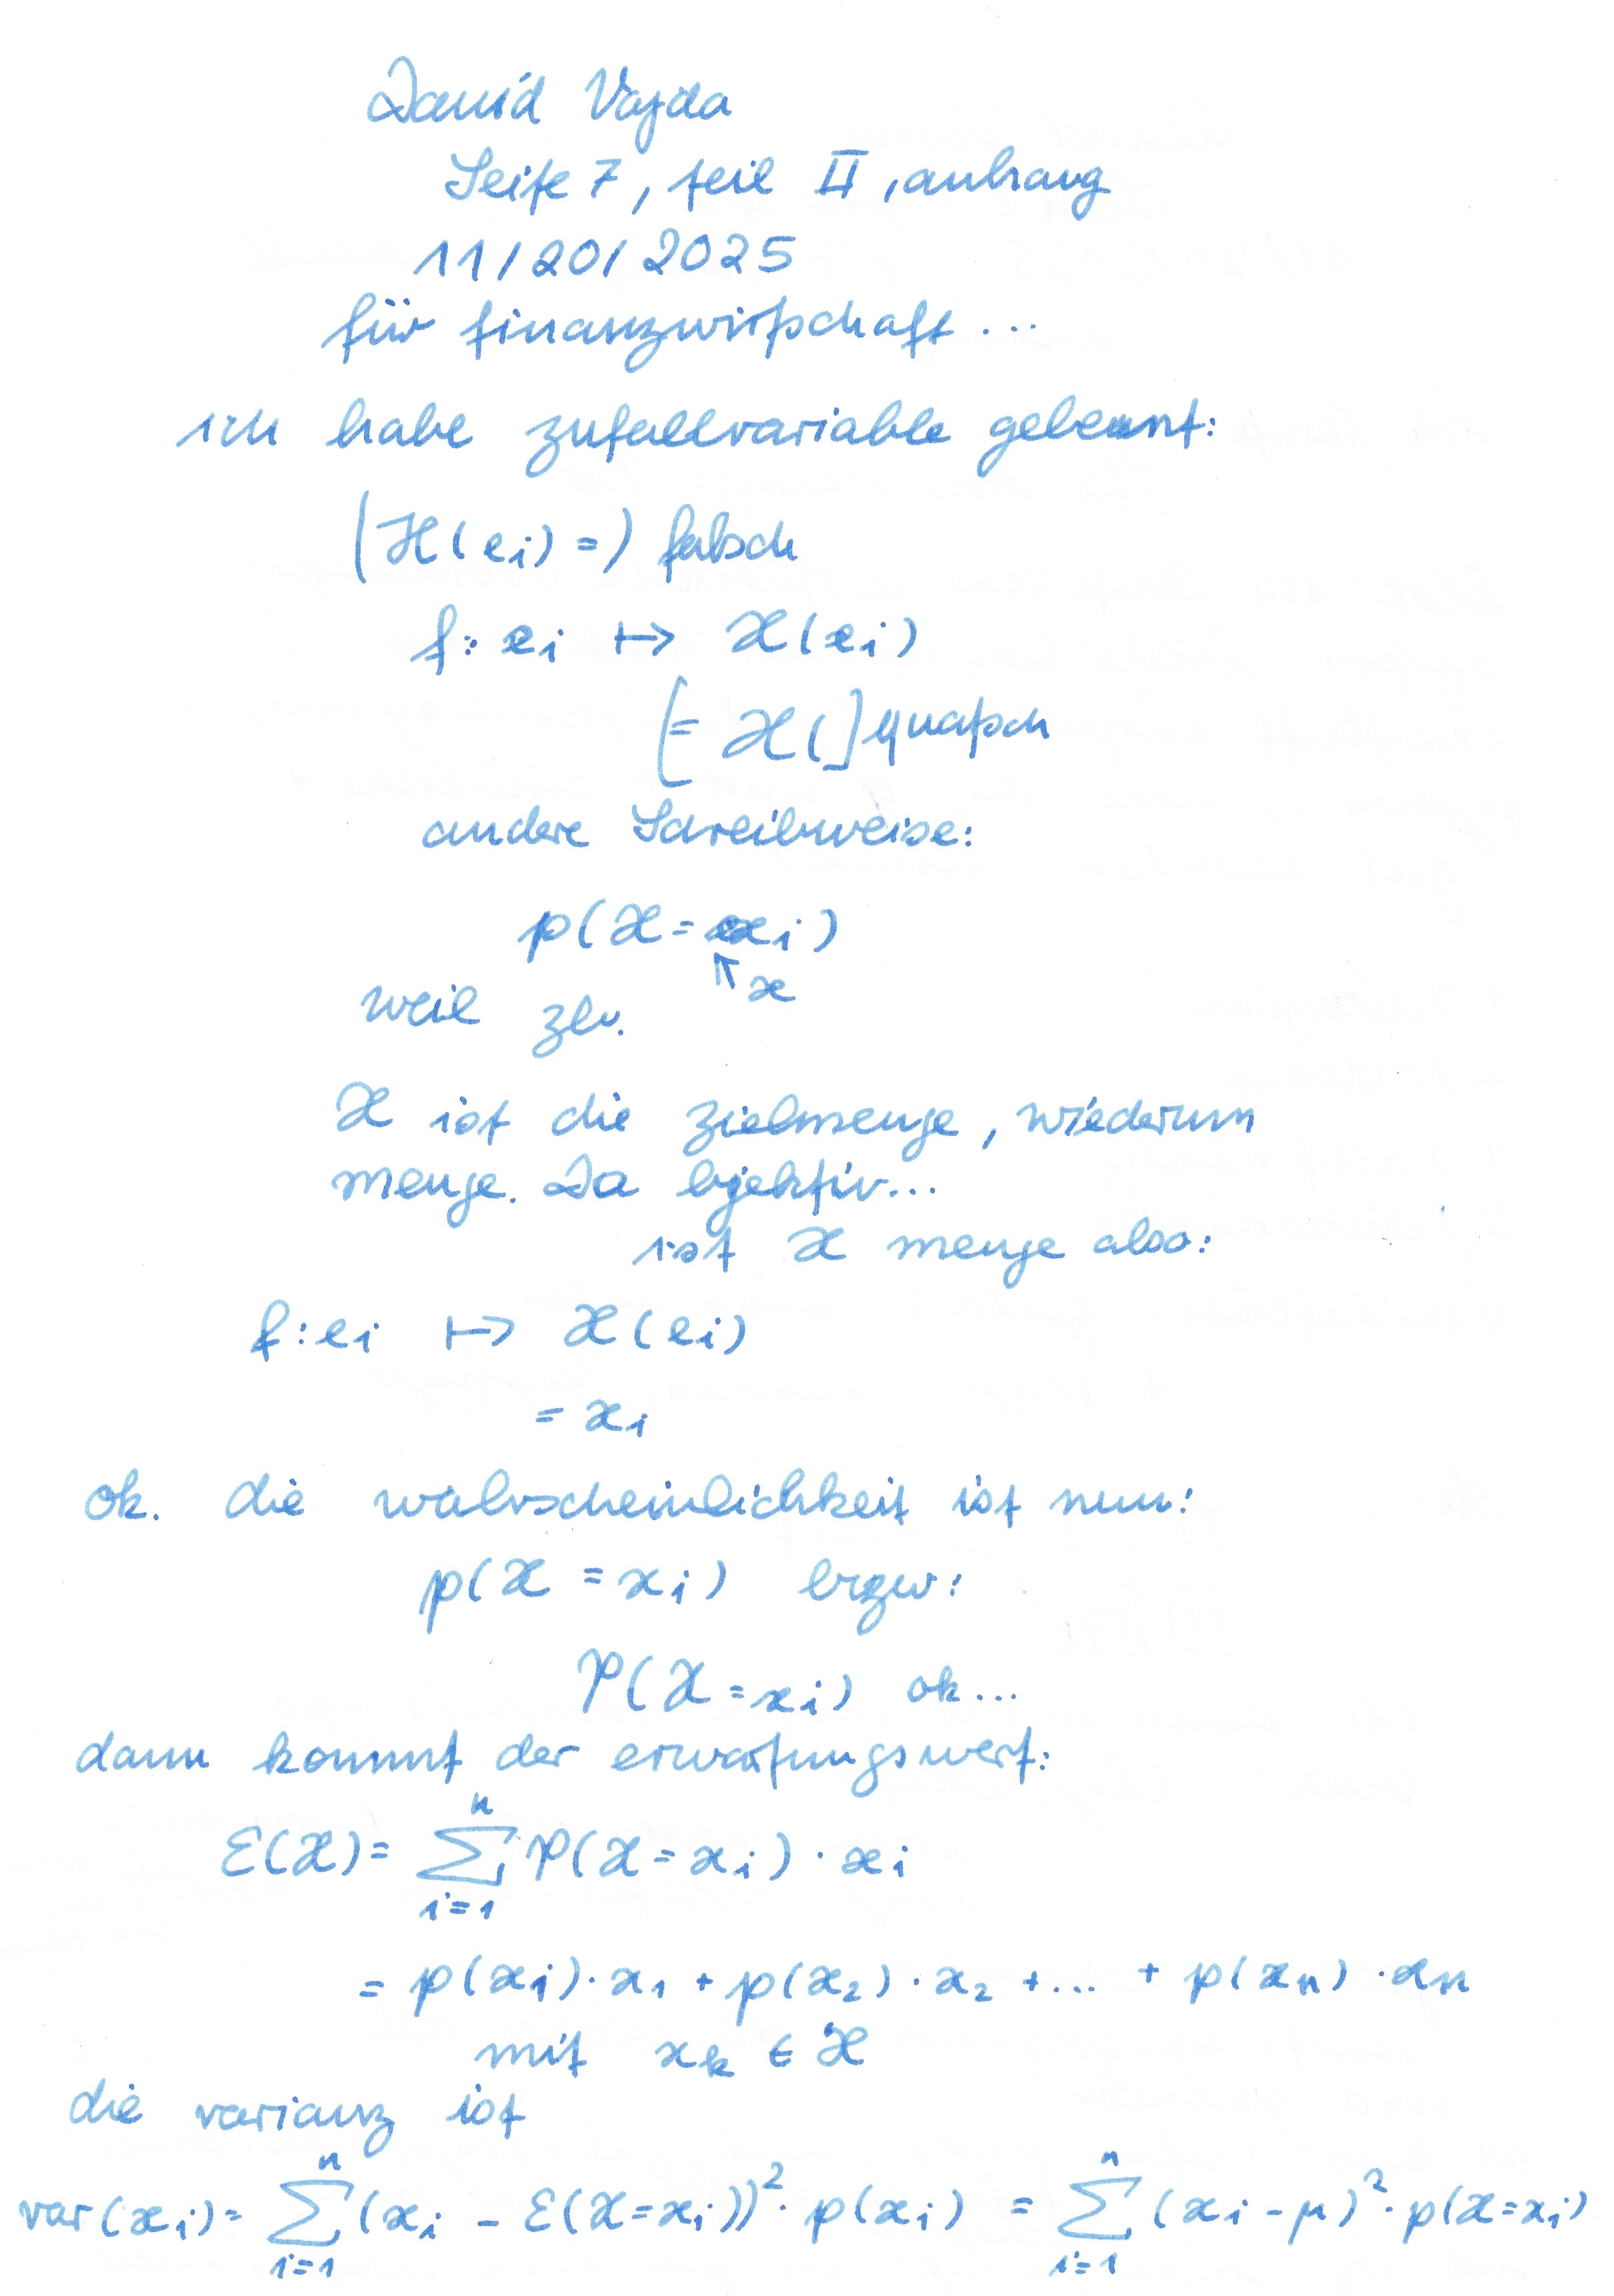 David Vajda
Seite 7, teil II, anhang
11/20/2025
für finanzwirtschaft...
ich habe zufallvariable gelernt:
(X(ei) =) falsch
f: ei ↦ X(ei)
[= X(] quatsch
andere Schreibweise:
p(X = xi)
↑ x
weil zb.
X ist die zielmenge, wiederum
menge. Da bijektiv...
ist X menge also:
f: ei ↦ X(ei)
= xi
ok. die wahrscheinlichkeit ist nun:
p(X = xi) bzw:
P(X = xi) ok...
dann kommt der erwartungswert:
E(X) = ∑_{i=1}^{n} P(X = xi) · xi
= p(x1) · x1 + p(x2) · x2 + ... + p(xn) · xn
mit xk ∈ X
die varianz ist
var(xi) = ∑_{i=1}^{n} (xi - E(X=xi))² · p(xi) = ∑_{i=1}^{n} (xi - μ)² · p(X=xi)